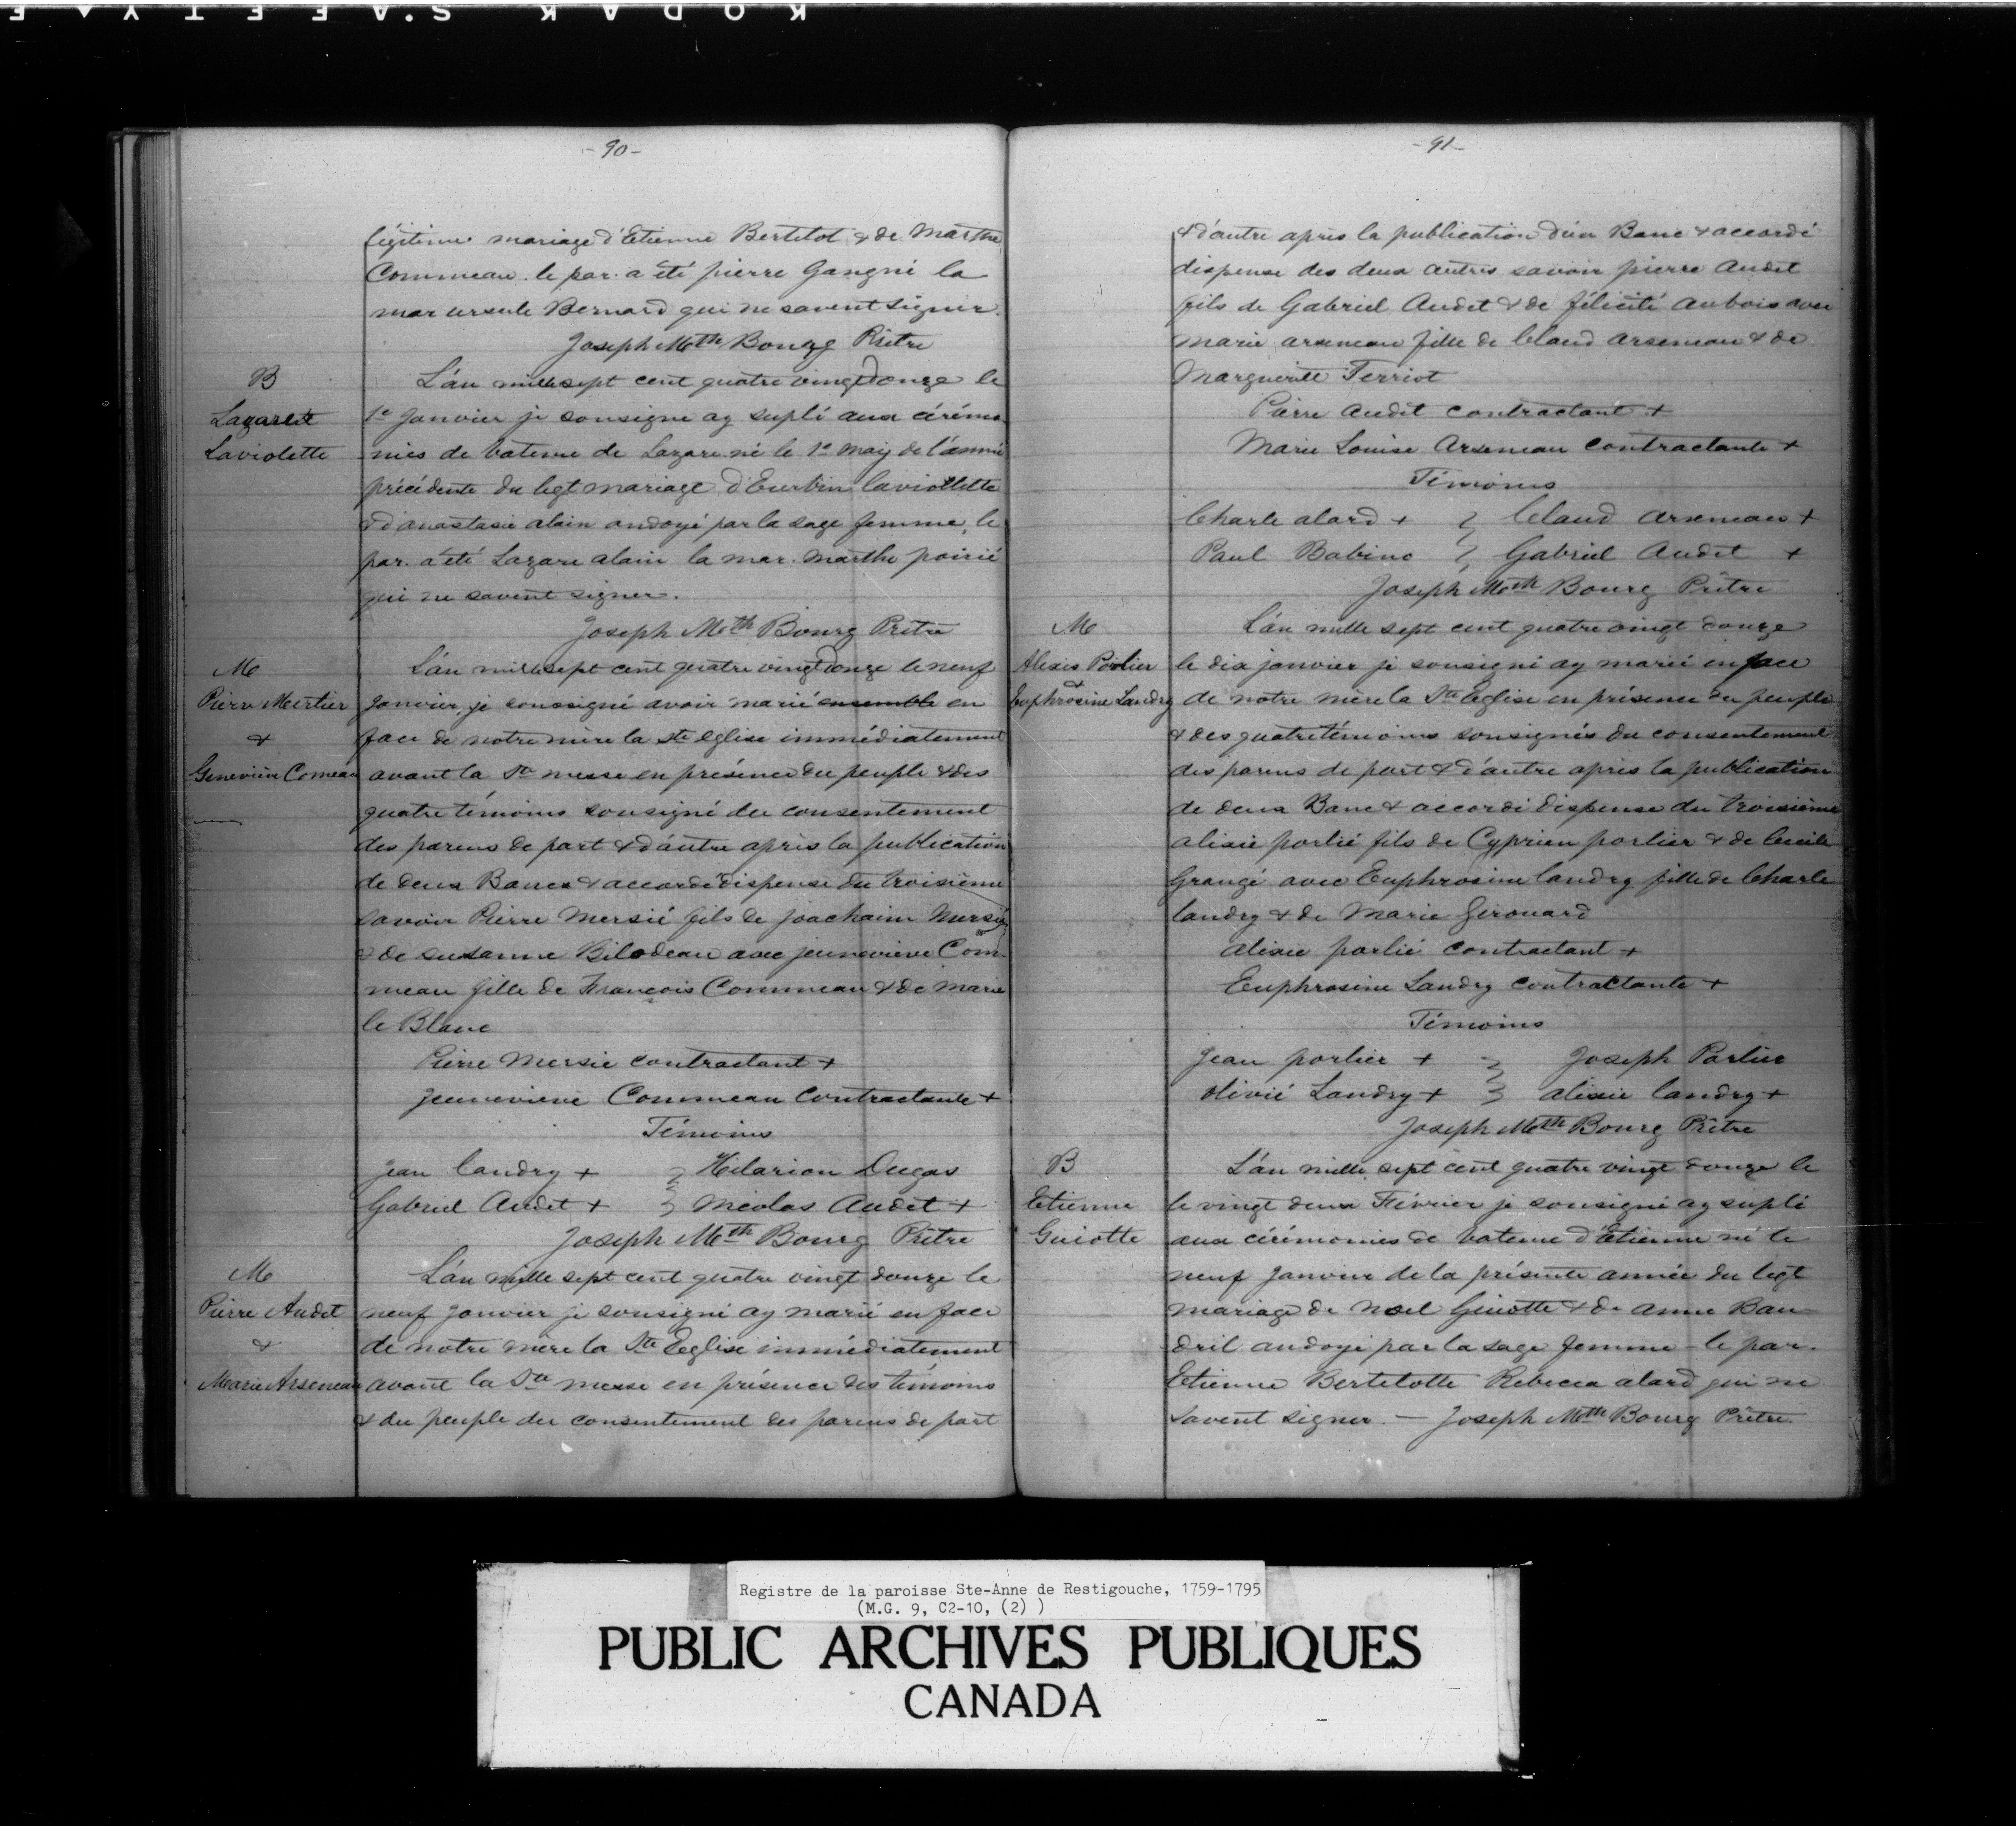 KODAK S.A F E T Y A F
- 90 -
légitime mariage d'Etienne Bertelot & de Marthe
Commeau. le par. a été pierre Gangné la
mar ursule Bernard qui ne savent signer.
Joseph Mth Bourg Prêtre
B
Lazare
Laviolette
L'an mille sept cent quatre vingt douze le
1e Janvier je sousigne ay suplé aux cérémo
nies de bateme de Lazare né le 1e may de l'année
précédente du legt mariage d'Eurbin laviollette
& d'anastasie alain ondoyé par la sage femme, le
par. a été Lazare alain la mar. marthe poirié
qui ne savent signer.
Joseph Mth Bourg Prêtre
M
Pierre Mertier
&
Geneviève Comeau
L'an mille sept cent quatre vingt douze le neuf
Janvier, je soussigné avoir marié ensemble en
face de notre mère la Ste eglise immédiatement
avant la Ste messe en présence du peuple & des
quatre témoins sousigné du consentement
des parens de part & d'autre après la publication
de deux Bancs & accordé dispense du troisième
savoir Pierre Mersié fils de joachaim Mersié
& de susanne Bilodeau avec jeunevieve Com-
meau fille de François Commeau & de Marie
le Blanc
Pierre Mersie contractant +
Jeunevieve Commeau Contractante +
Témoins
Jean landry + } Hilarion Dugas
Gabriel Audet + } Nicolas Audet +
Joseph Mth Bourg Prêtre
M
Pierre Audet
&
Marie Arseneau
L'an mille sept cent quatre vingt douze le
neuf Janvier je sousigné ay marié en face
de notre mère la Ste Eeglise immédiatement
avant la Ste messe en présence des témoins
& du peuple du consentement des parens de part
- 91 -
& d'autre après la publication d'un Banc & accordé
dispense des deux autres savoir pierre Audet
fils de Gabriel Audet & de félicité aubois avec
marie arseneau fille de Claud arseneau & de
Marguerite Terriot
Pierre Audet contractant +
Marie Louise Arseneau contractante +
Témoins
Charle alard + } Claud arseneau +
Paul Babino } Gabriel Audet +
Joseph Mth Bourg Prêtre
M
Alexis Porlier
&
Euphrosine Landry
L'an mille sept cent quatre vingt douze
le dix janvier je sousigné ay marié en face
de notre mère la Ste Eglise en présence du peuple
& des quatre témoins sousignés du consentement
des parens de part & d'autre après la publication
de deux Banc & accordé dispense du troisième
alixie porlié fils de Cyprien porlier & de Cecile
Grangé avec Euphrosine landry fille de Charle
landry & de Marie Girouard
alixie porlié contractant +
Euphrosine Landry contractante +
Témoins
Jean porlier + } Joseph Porlier
Olivié Landry + } alixie landry +
Joseph Mth Bourg Prêtre
B
Etienne
Guiotte
L'an mille sept cent quatre vingt douze le
le vingt deux Février je sousigné ay suplé
aux cérémonies de bateme d'Etienne né le
neuf Janvier de la présente année du legt
mariage de Noel Guiotte & de Anne Bau-
dril ondoyé par la sage femme - le par.
Etienne Bertelotte Rebecca alard qui ne
savent signer. - Joseph Mth Bourg Prêtre.
Registre de la paroisse Ste-Anne de Restigouche, 1759-1795
(M.G. 9, C2-10, (2) )
PUBLIC ARCHIVES PUBLIQUES
CANADA